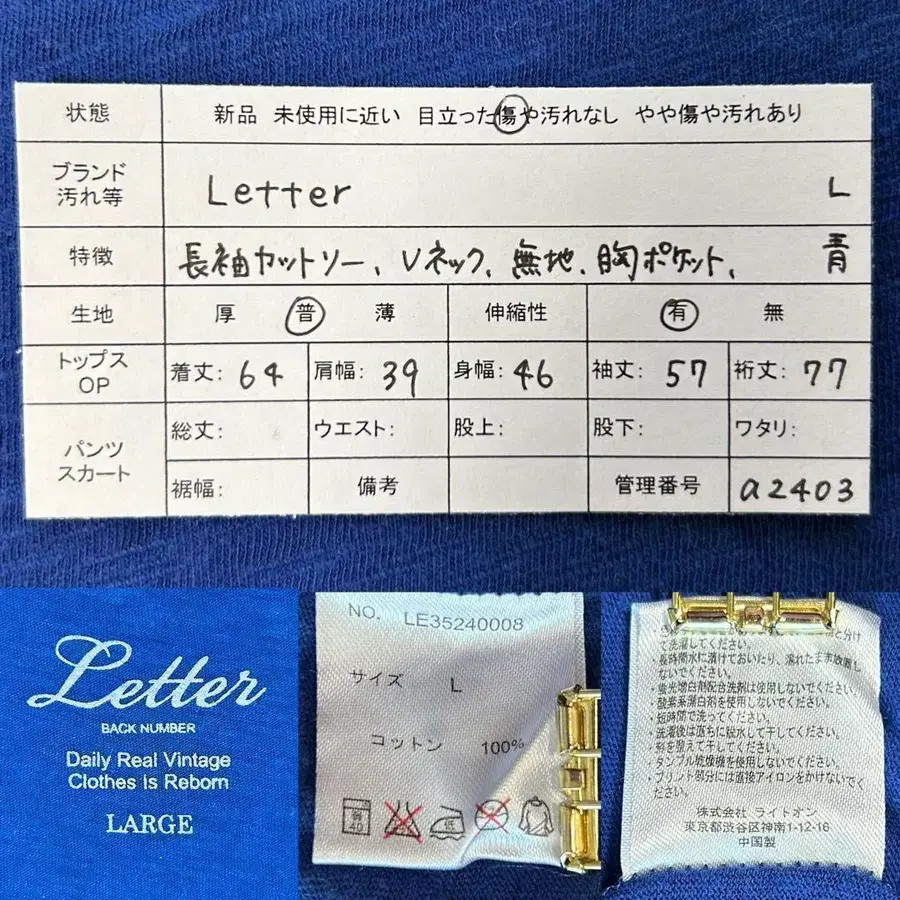 状態 新品 未使用に近い 目立った傷や汚れなし やや傷や汚れあり
ブランド
汚れ等 Letter L
特徴 長袖カットソー、Vネック、無地、胸ポケット、 青
生地 厚 普 薄 伸縮性 有 無
トップス
OP 着丈: 64 肩幅: 39 身幅: 46 袖丈: 57 裄丈: 77
パンツ
スカート 総丈: ウエスト: 股上: 股下: ワタリ:
裾幅: 備考 管理番号 a2403
Letter
BACK NUMBER
Daily Real Vintage
Clothes Is Reborn
LARGE
NO. LE35240008
サイズ L
コットン 100%
弱
40
低
と分け
て洗濯してください。
・長時間水に漬けておいたり、濡れたまま放置し
ないでください。
・蛍光増白剤配合洗剤は使用しないでください。
酸素系漂白剤を使用しないでください。
・短時間で洗ってください。
洗濯後は直ちに脱水して干してください。
形を整えて干してください。
タンブル乾燥機を使用しないでください。
プリント部分には直接アイロンをかけないでく
ださい。
株式会社 ライトオン
東京都渋谷区神南1-12-16
中国製